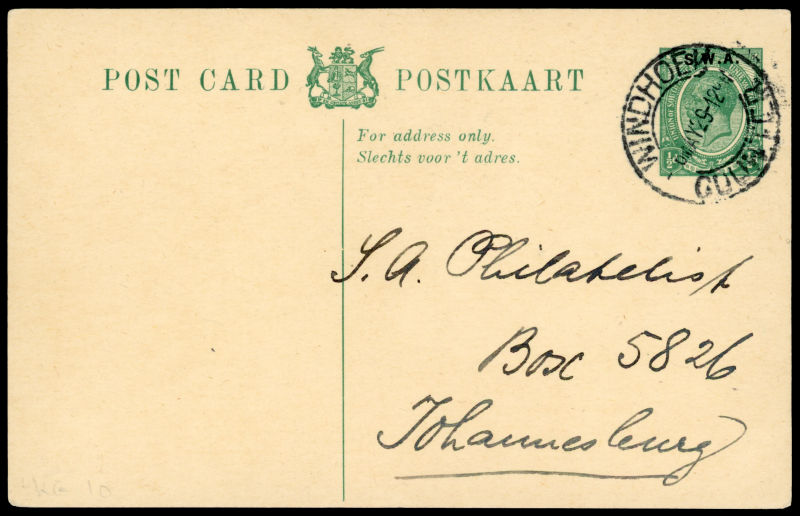 POST CARD POSTKAART
For address only.
Slechts voor 't adres.
S.W.A.
WINDHOEK
COUNTER
MAY 29-12
½
S. A. Philatelist
Box 5826
Johannesburg